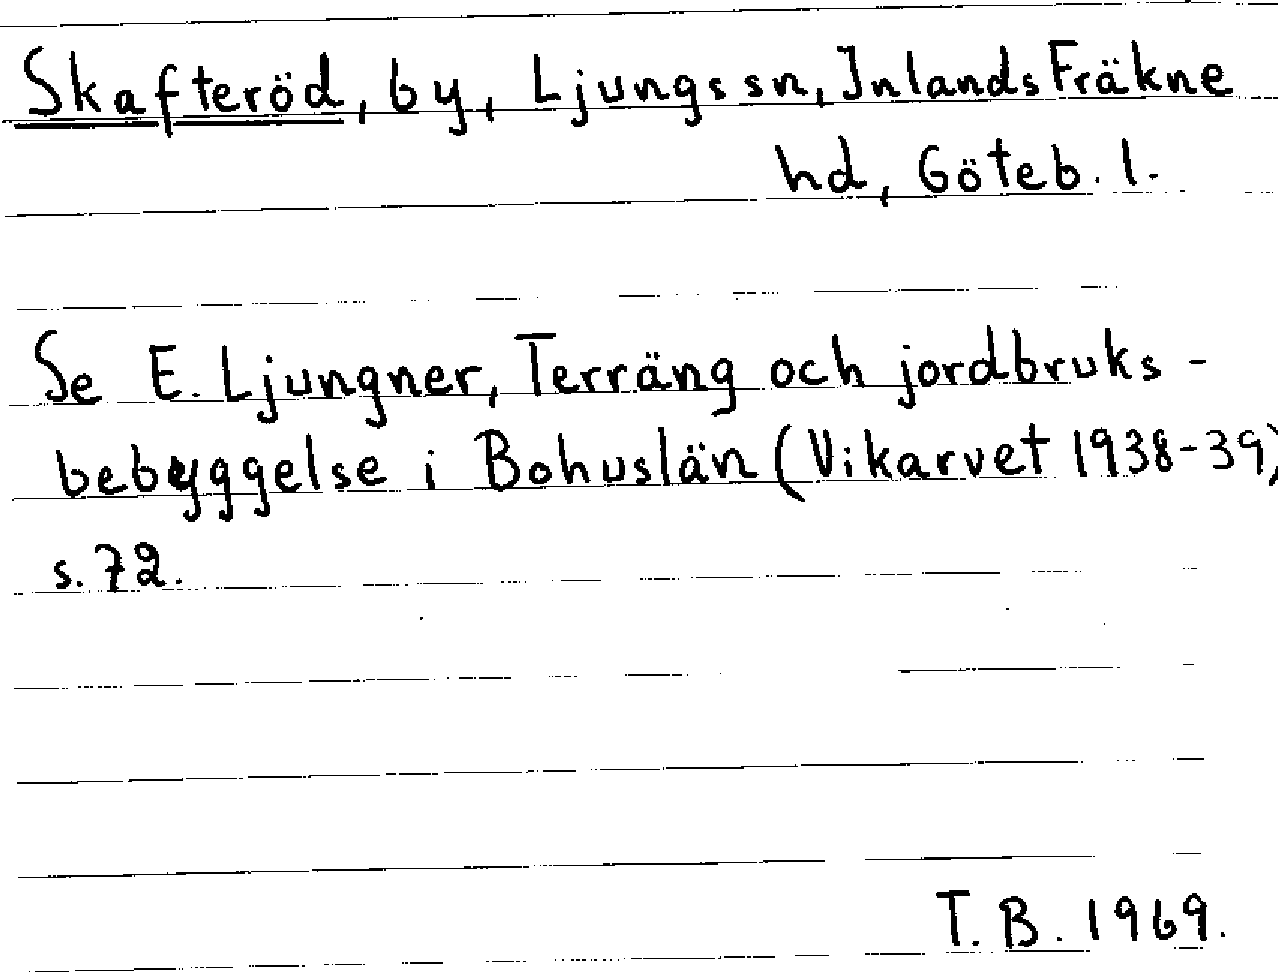 Skafteröd, by, Ljungs sn, Inlands Fräkne
hd, Göteb. l.
Se E. Ljungner, Terräng och jordbruks-
bebyggelse i Bohuslän (Vikarvet 1938-39)
s. 72.
T. B. 1969.